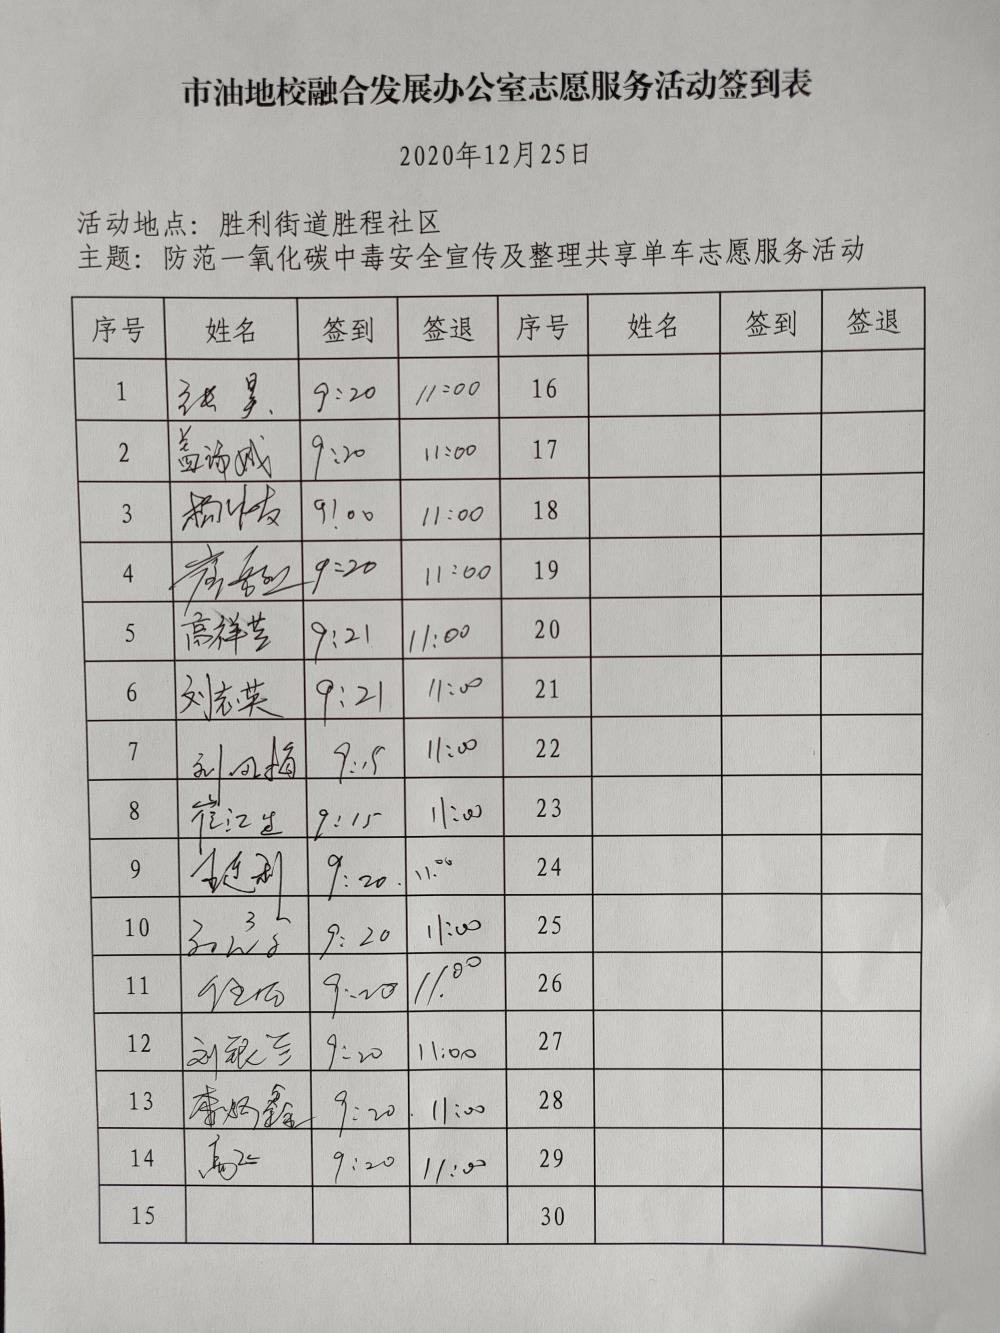 市油地校融合发展办公室志愿服务活动签到表
2020年12月25日
活动地点：胜利街道胜程社区
主题：防范一氧化碳中毒安全宣传及整理共享单车志愿服务活动
序号 姓名 签到 签退 序号 姓名 签到 签退
1 张昊 9:20 11:00 16
2 9:20 11:00 17
3 9:00 11:00 18
4 9:20 11:00 19
5 高祥芸 9:21 11:00 20
6 刘志英 9:21 11:00 21
7 9:15 11:00 22
8 崔江生 9:15 11:00 23
9 9:20 11:00 24
10 9:20 11:00 25
11 9:20 11:00 26
12 刘银兰 9:20 11:00 27
13 9:20 11:00 28
14 9:20 11:00 29
15 30